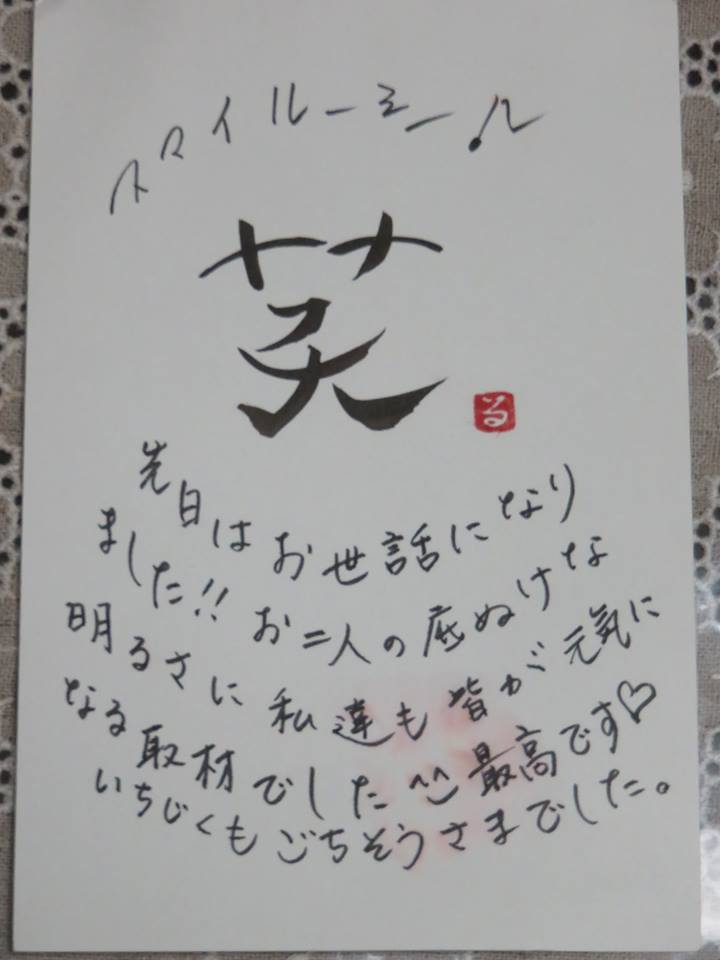 スマイルーミール
笑
る
先日はお世話になり
ました!! お二人の底ぬけな
明るさに私達も皆が元気に
なる取材でした^^ 最高です♡
いちじくもごちそうさまでした。